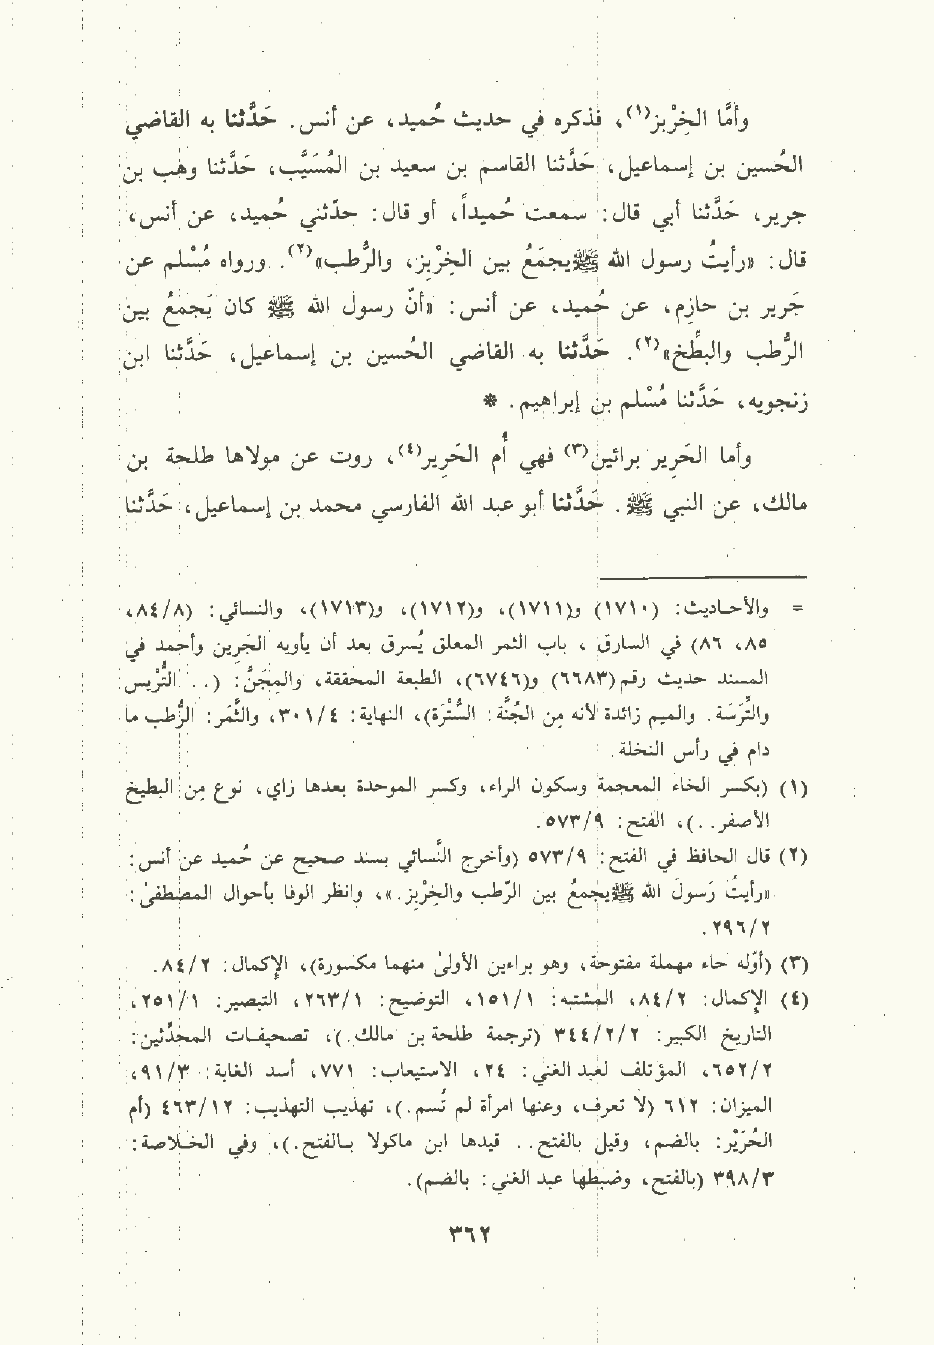 وأمَّا الخِرْبِز(١)، فذكره في حديث حُميد، عن أنس. حَدَّثنا به القاضي
الحُسين بن إسماعيل، حَدَّثنا القاسم بن سعيد بن المُسَيَّب، حَدَّثنا وهب بن
جرير، حَدَّثنا أبي قال: سمعت حُميداً، أو قال: حدّثني حُميد، عن أنس،
قال: «رأيتُ رسول الله ﷺ يجمَعُ بين الخِرْبِز، والرُّطب»(٢). ورواه مُسْلم عن
جَرير بن حازم، عن حُميد، عن أنس: «أنّ رسول الله ﷺ كان يَجمَعُ بين
الرُّطب والبطِّخ»(٢). حَدَّثنا به القاضي الحُسين بن إسماعيل، حَدَّثنا ابن
زنجويه، حَدَّثنا مُسْلم بن إبراهيم. *
وأما الحَرِير برائين(٣) فهي أُم الحَرِير(٤)، تروي عن مولاها طلحة بن
مالك، عن النبي ﷺ. حَدَّثنا أبو عبد الله الفارسي محمد بن إسماعيل، حَدَّثنا
= والأحاديث: (١٧١٠) و(١٧١١)، و(١٧١٢)، و(١٧١٣)، والنسائي: (٨/ ٨٤،
٨٥، ٨٦) في السارق، باب الثمر المعلق يُسرق بعد أن يأويه الجَرين وأحمد في
المسند حديث رقم(٦٦٨٣) و(٦٧٤٦)، الطبعة المحققة، والمِجَنُّ: (.. التُّرْس
والتِّرَسَة. والميم زائدة لأنه مِن الجُنَّة: السُّتْرَة)، النهاية: ٤/ ٣٠١، والثَّمَر: الرُّطب ما
دام في رأس النخلة.
(١) (بكسر الخاء المعجمة وسكون الراء، وكسر الموحدة بعدها زاي، نوع مِن البطيخ
الأصفر..)، الفتح: ٩/ ٥٧٣.
(٢) قال الحافظ في الفتح: ٩/ ٥٧٣ (وأخرج النَّسائي بسند صحيح عن حُميد عن أنس:
«رأيتُ رَسولَ الله ﷺ يجمعُ بين الرّطب والخِرْبِز.»، وانظر الوفا بأحوال المصطفىٰ:
٢/ ٢٩٦.
(٣) (أوّله حاء مهملة مفتوحة، وهو براءين الأولىٰ منهما مكسورة)، الإكمال: ٢/ ٨٤.
(٤) الإكمال: ٢/ ٨٤، المشتبه: ١/ ١٥١، التوضيح: ١/ ٢٦٣، التبصير: ١/ ٢٥١،
التاريخ الكبير: ٢/ ٢/ ٣٤٤ (ترجمة طلحة بن مالك.)، تصحيفات المحدِّثين:
٢/ ٦٥٢، المؤتلف لعبد الغني: ٢٤، الاستيعاب: ٧٧١، أسد الغابة: ٣/ ٩١،
الميزان: ٦١٢ (لا تعرف، وعنها امرأة لم تُسم.)، تهذيب التهذيب: ١٢/ ٤٦٣ (أم
الحُرَيْر: بالضم، وقيل بالفتح.. قيدها ابن ماكولا بالفتح.)، وفي الخلاصة:
٣/ ٣٩٨ (بالفتح، وضبطها عبد الغني: بالضم).
٣٦٢